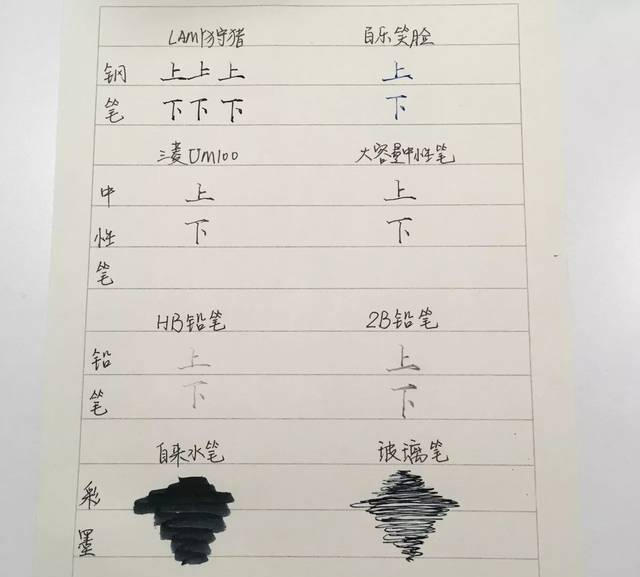 LAMY狩猎 百乐笑脸
钢 上上上 上
笔 下下下 下
三菱Um100 大容量中性笔
中 上 上
性 下 下
笔
HB铅笔 2B铅笔
铅 上 上
笔 下 下
自来水笔 玻璃笔
彩
墨